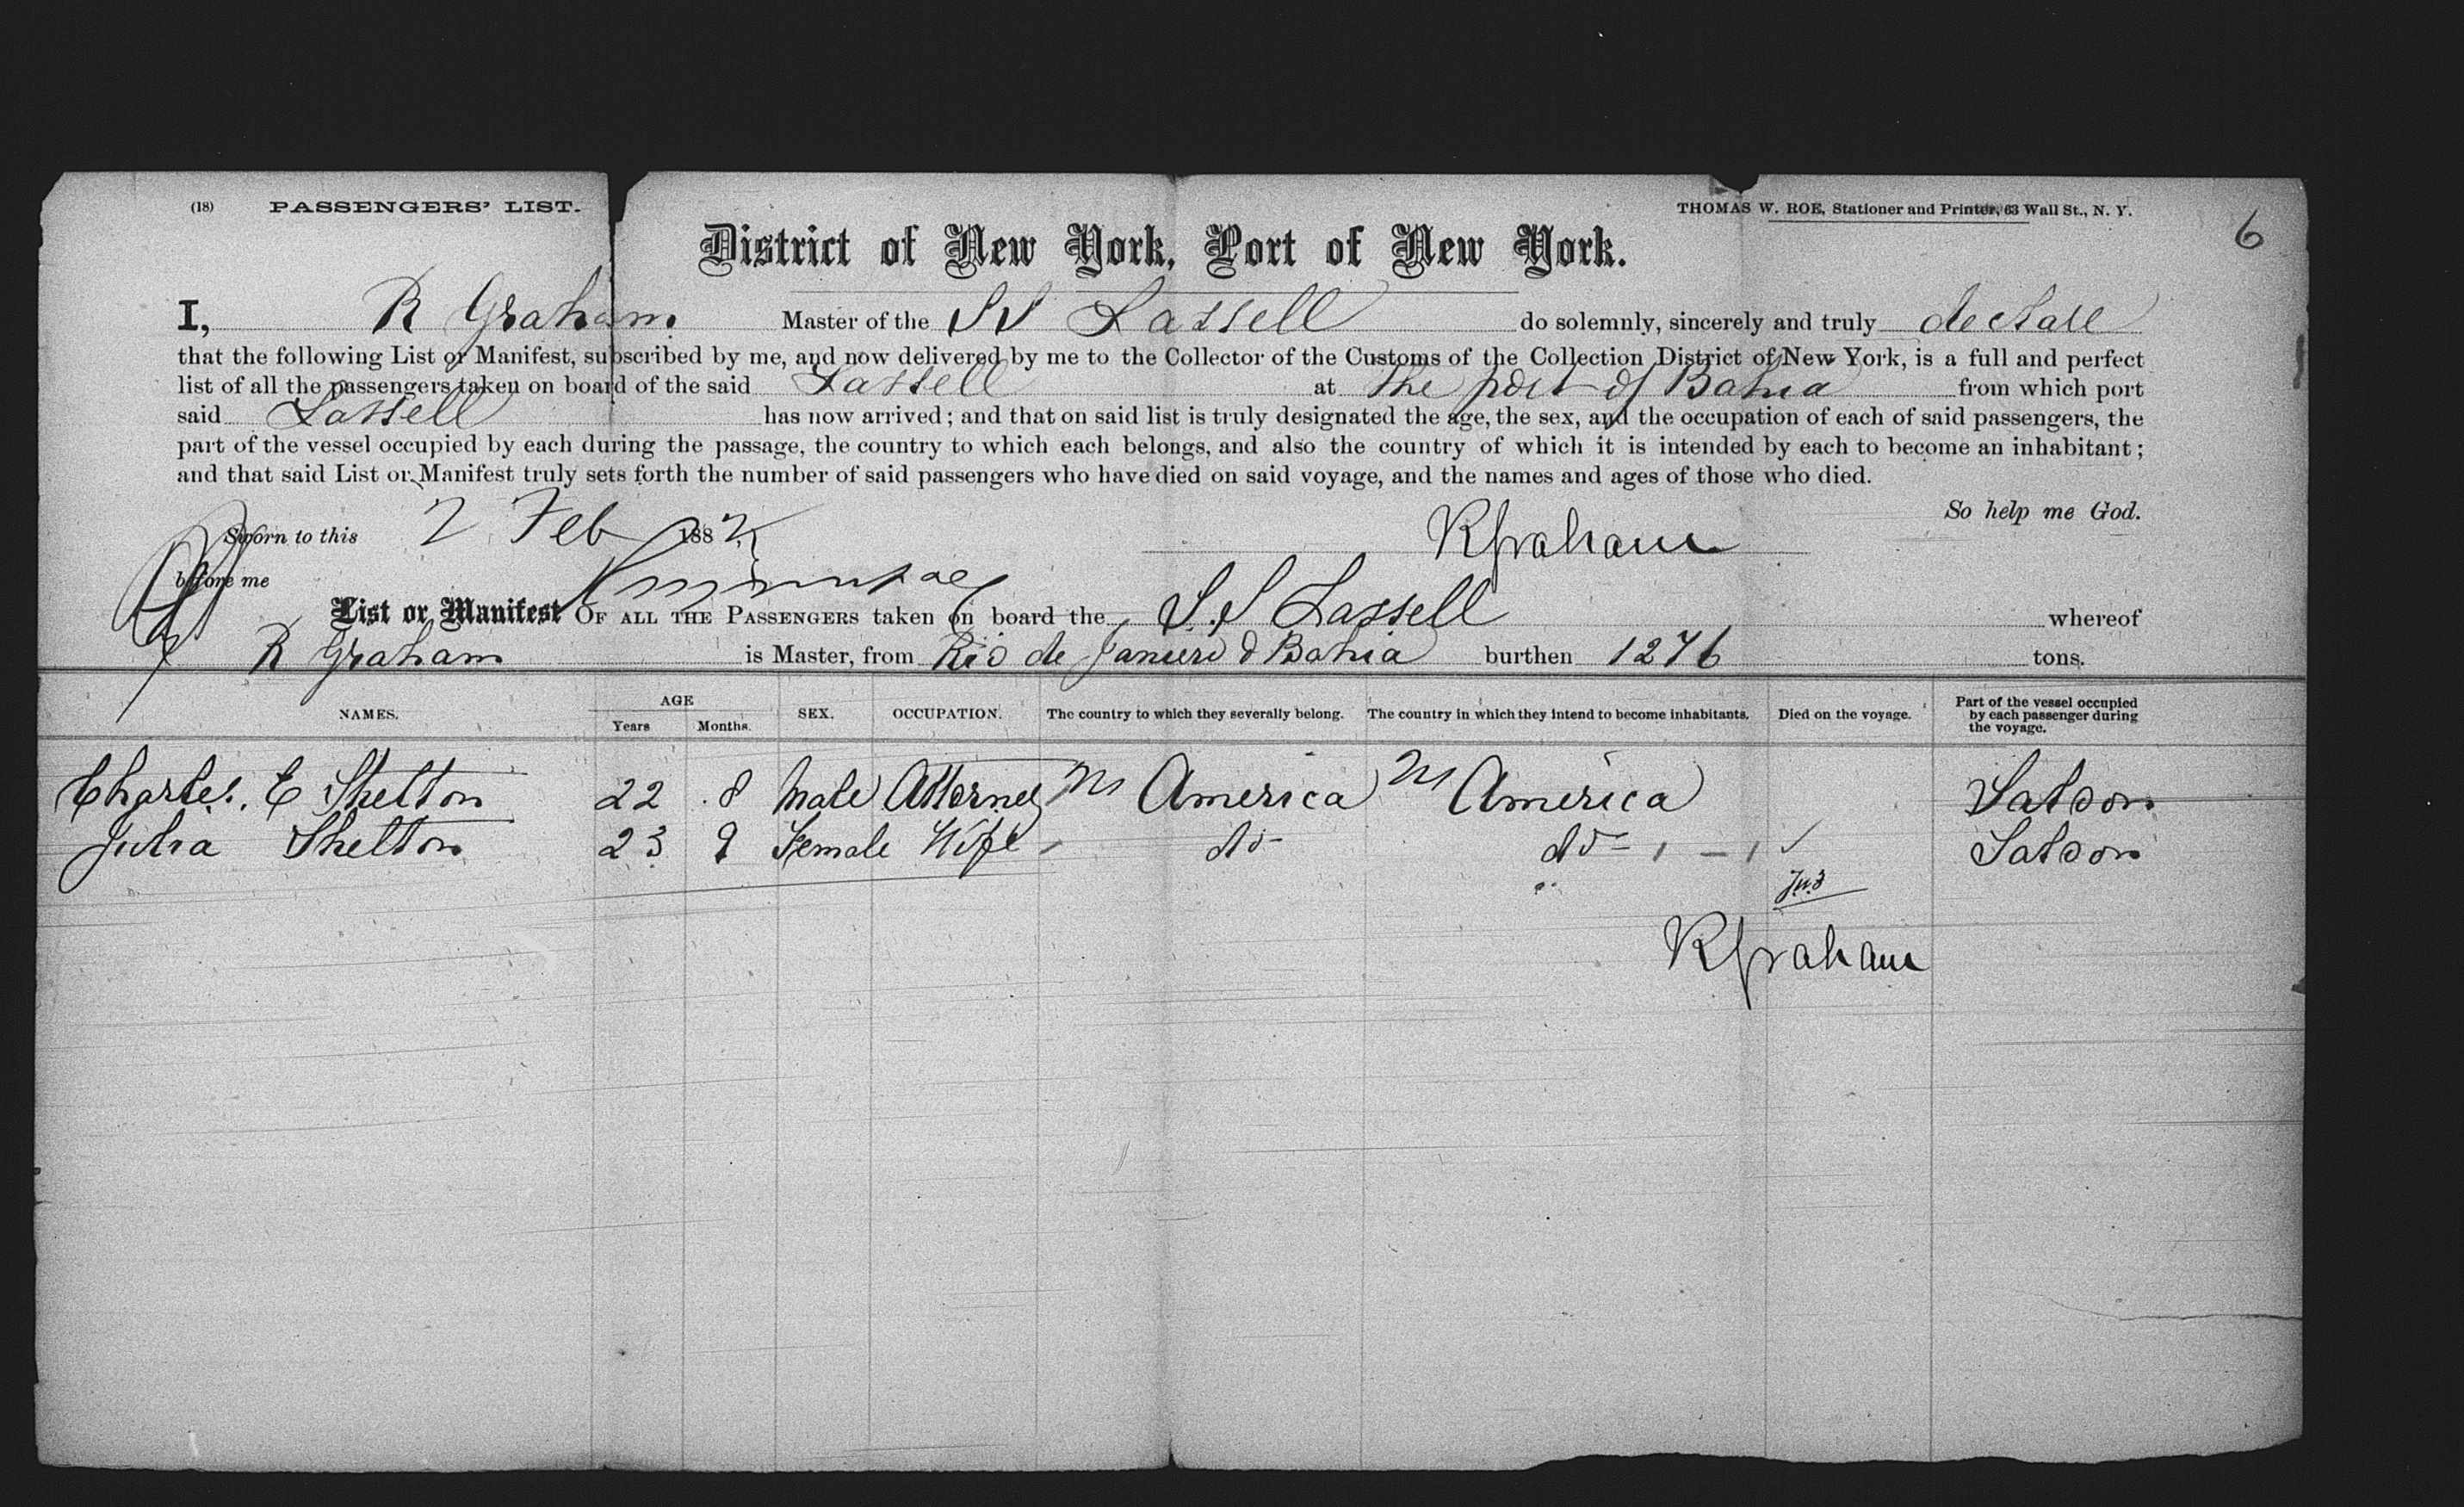 (18) PASSENGERS' LIST.
THOMAS W. ROE, Stationer and Printer, 63 Wall St., N. Y.
6
District of New York, Port of New York.
I, R Graham Master of the SS Lassell do solemnly, sincerely and truly declare
that the following List or Manifest, subscribed by me, and now delivered by me to the Collector of the Customs of the Collection District of New York, is a full and perfect
list of all the passengers taken on board of the said Lassell at The port of Bahia from which port
said Lassell has now arrived; and that on said list is truly designated the age, the sex, and the occupation of each of said passengers, the
part of the vessel occupied by each during the passage, the country to which each belongs, and also the country of which it is intended by each to become an inhabitant;
and that said List or Manifest truly sets forth the number of said passengers who have died on said voyage, and the names and ages of those who died.
So help me God.
Sworn to this 2 Feb 1882
RGraham
before me
List or Manifest OF ALL THE PASSENGERS taken on board the S.S Lassell whereof
R Graham is Master, from Rio de Janiero & Bahia burthen 1276 tons.
NAMES. AGE Years Months. SEX. OCCUPATION. The country to which they severally belong. The country in which they intend to become inhabitants. Died on the voyage. Part of the vessel occupied by each passenger during the voyage.
Charles. E Shelton 22 8 Male Attorney N America N America Saloon
Julia Shelton 23 9 Female Wife do do Saloon
RGraham